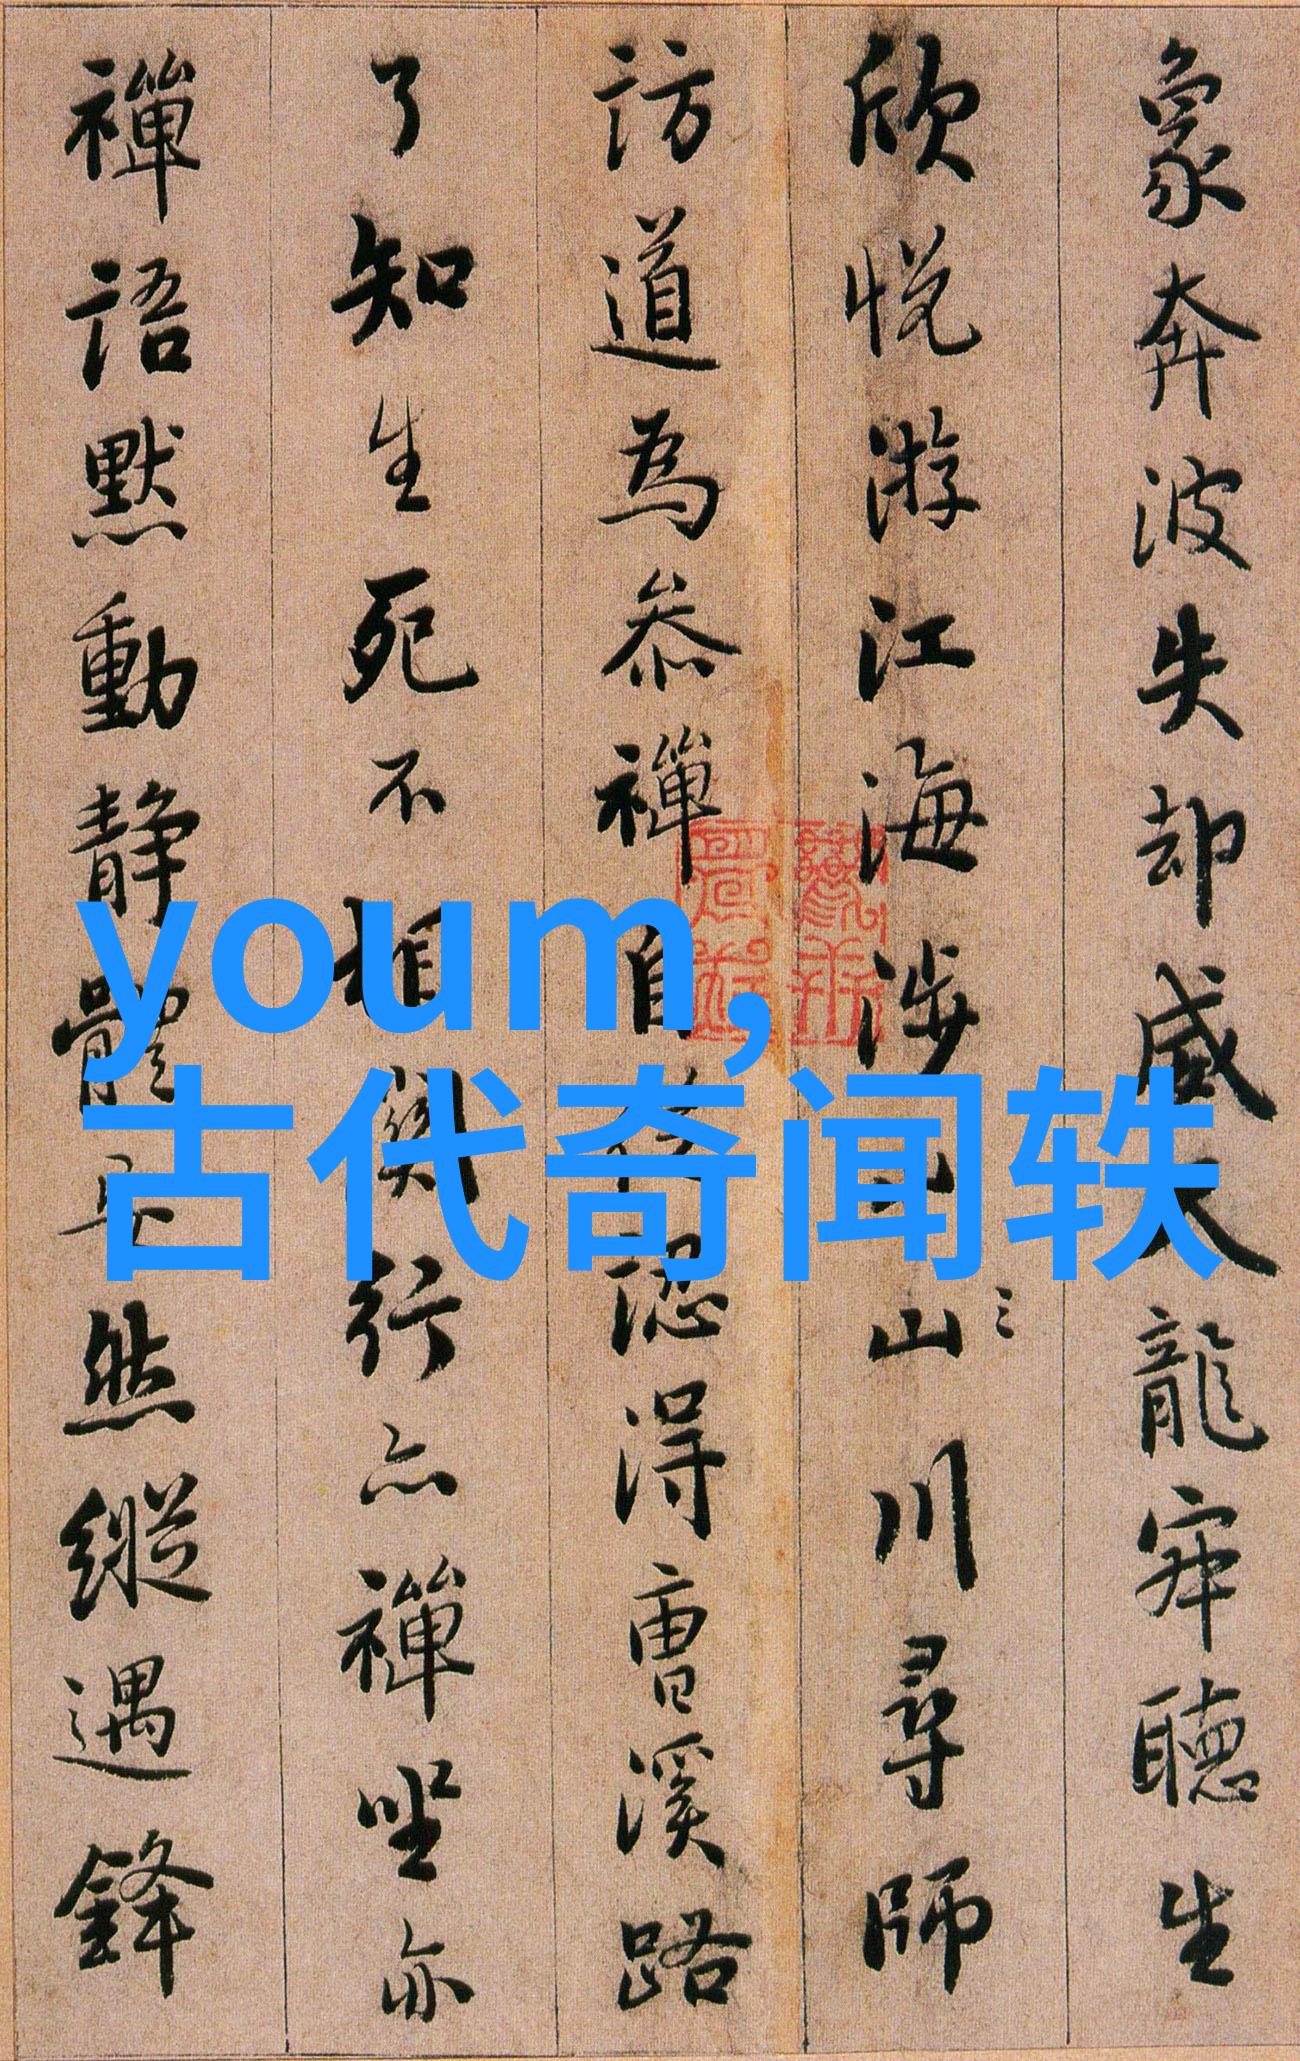 象奔波失却威天龍寂聽生
欣悅游江海涉山川尋師
訪道為叅禪自從認得曹溪路
了知生死不相關行亦禪坐亦
禪語默動靜體安然縱遇鋒
youm,
古代奇闻轶